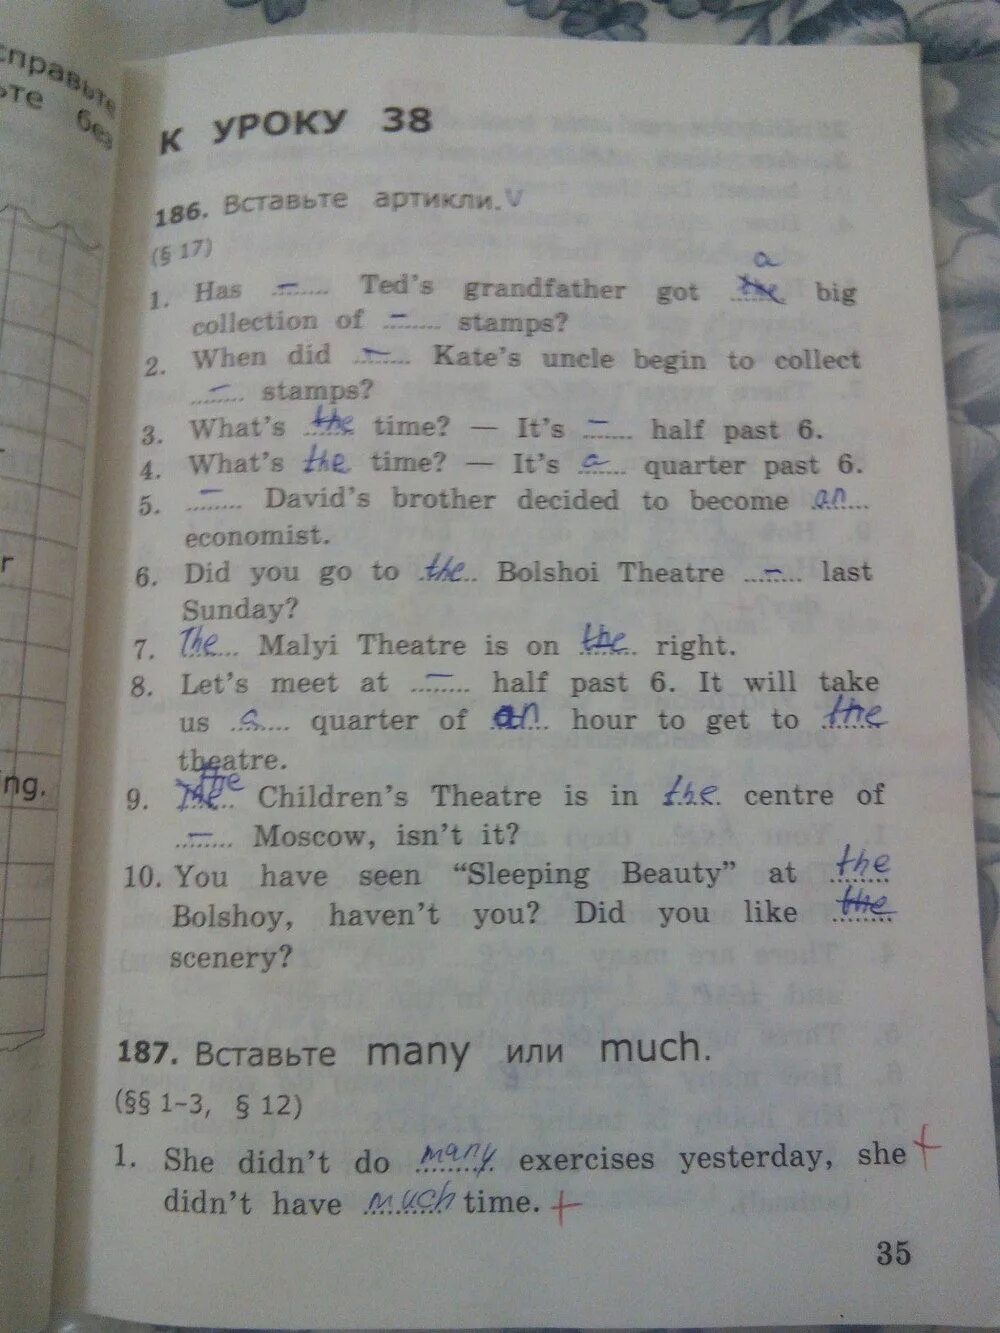 справьте
ьте без
К УРОКУ 38
186. Вставьте артикли. V
(§ 17)
a
1. Has – Ted's grandfather got the big
collection of – stamps?
2. When did – Kate's uncle begin to collect
– stamps?
3. What's the time? — It's – half past 6.
4. What's the time? — It's a quarter past 6.
5. – David's brother decided to become an
economist.
6. Did you go to the Bolshoi Theatre – last
Sunday?
7. The Malyi Theatre is on the right.
8. Let's meet at – half past 6. It will take
us a quarter of an hour to get to the
theatre.
the
9. The Children's Theatre is in the centre of
– Moscow, isn't it?
10. You have seen "Sleeping Beauty" at the
Bolshoy, haven't you? Did you like the
scenery?
187. Вставьте many или much.
(§§ 1–3, § 12)
1. She didn't do many exercises yesterday, she +
didn't have much time. +
35
r
ing.